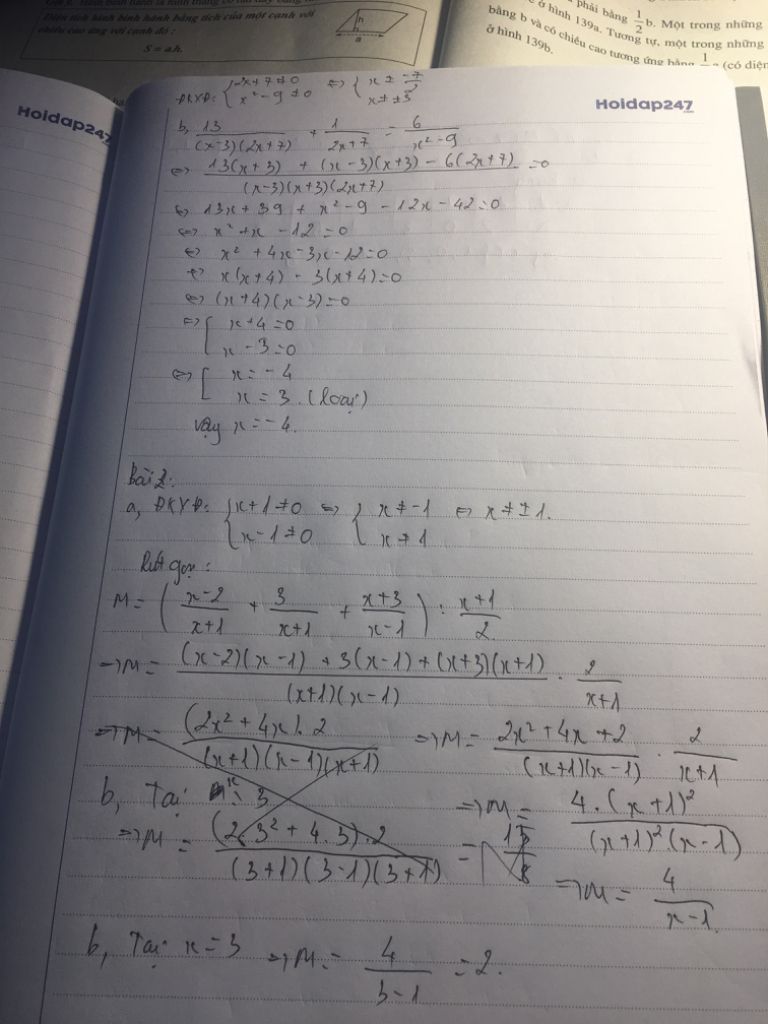 Diện tích hình bình hành bằng tích của một cạnh với
chiều cao ứng với cạnh đó :
S = a.h.
h
a
phải bằng 1/2 b. Một trong những
ở hình 139a. Tương tự, một trong những
bằng b và có chiều cao tương ứng bằng
ở hình 139b.
(có diện
Hoidap247
Hoidap247
ĐKXĐ: { 2x+7≠0 ⇔ { x ≠ -7/2
x²-9≠0 x≠±3
b, 13/((x-3)(2x+7)) + 1/(2x+7) = 6/(x²-9)
⇔ (13(x+3) + (x-3)(x+3) - 6(2x+7))/((x-3)(x+3)(2x+7)) = 0
⇔ 13x + 39 + x² - 9 - 12x - 42 = 0
⇔ x² + x - 12 = 0
⇔ x² + 4x - 3x - 12 = 0
⇔ x(x+4) - 3(x+4) = 0
⇔ (x+4)(x-3) = 0
⇔ [ x+4 = 0
x - 3 = 0
⇔ [ x = -4
x = 3 (loại)
Vậy x = -4.
Bài 2:
a, ĐKXĐ: { x+1≠0 ⇔ { x≠-1 ⇔ x≠±1.
x-1≠0 x≠1
Rút gọn:
M = ( (x-2)/(x+1) + 3/(x+1) + (x+3)/(x-1) ) : (x+1)/2
→ M = ((x-2)(x-1) + 3(x-1) + (x+3)(x+1))/((x+1)(x-1)) . 2/(x+1)
→ M = ((2x² + 4x).2)/((x+1)(x-1)(x+1)) → M = (2x²+4x+2)/((x+1)(x-1)) . 2/(x+1)
b, Tại x = 3 → M = (4.(x+1)²)/((x+1)²(x-1))
→ M = ((2.3² + 4.3).2)/((3+1)(3-1)(3+1)) = 15/8
→ M = 4/(x-1)
b, Tại x = 3 → M = 4/(3-1) = 2.